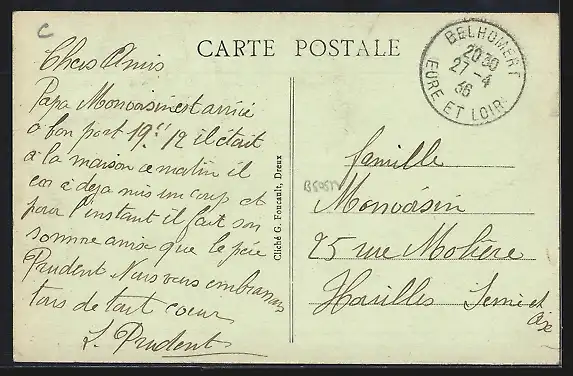 C
CARTE POSTALE
BELHOMERT
20 30
27 - 4
36
EURE ET LOIR
Chers Amis
Papa Monvoisin est arrivé
a bon port 19h 12 il était
à la maison ce matin il
en a deja mis un coup et
pour l'instant il fait son
somme ainsi que le père
Prudent Nous vous embrassons
tous de tout coeur
L. Prudent
Cliché G. Foucault, Dreux
famille
Monvoisin
25 rue Molière
Houilles Seine et
Oise